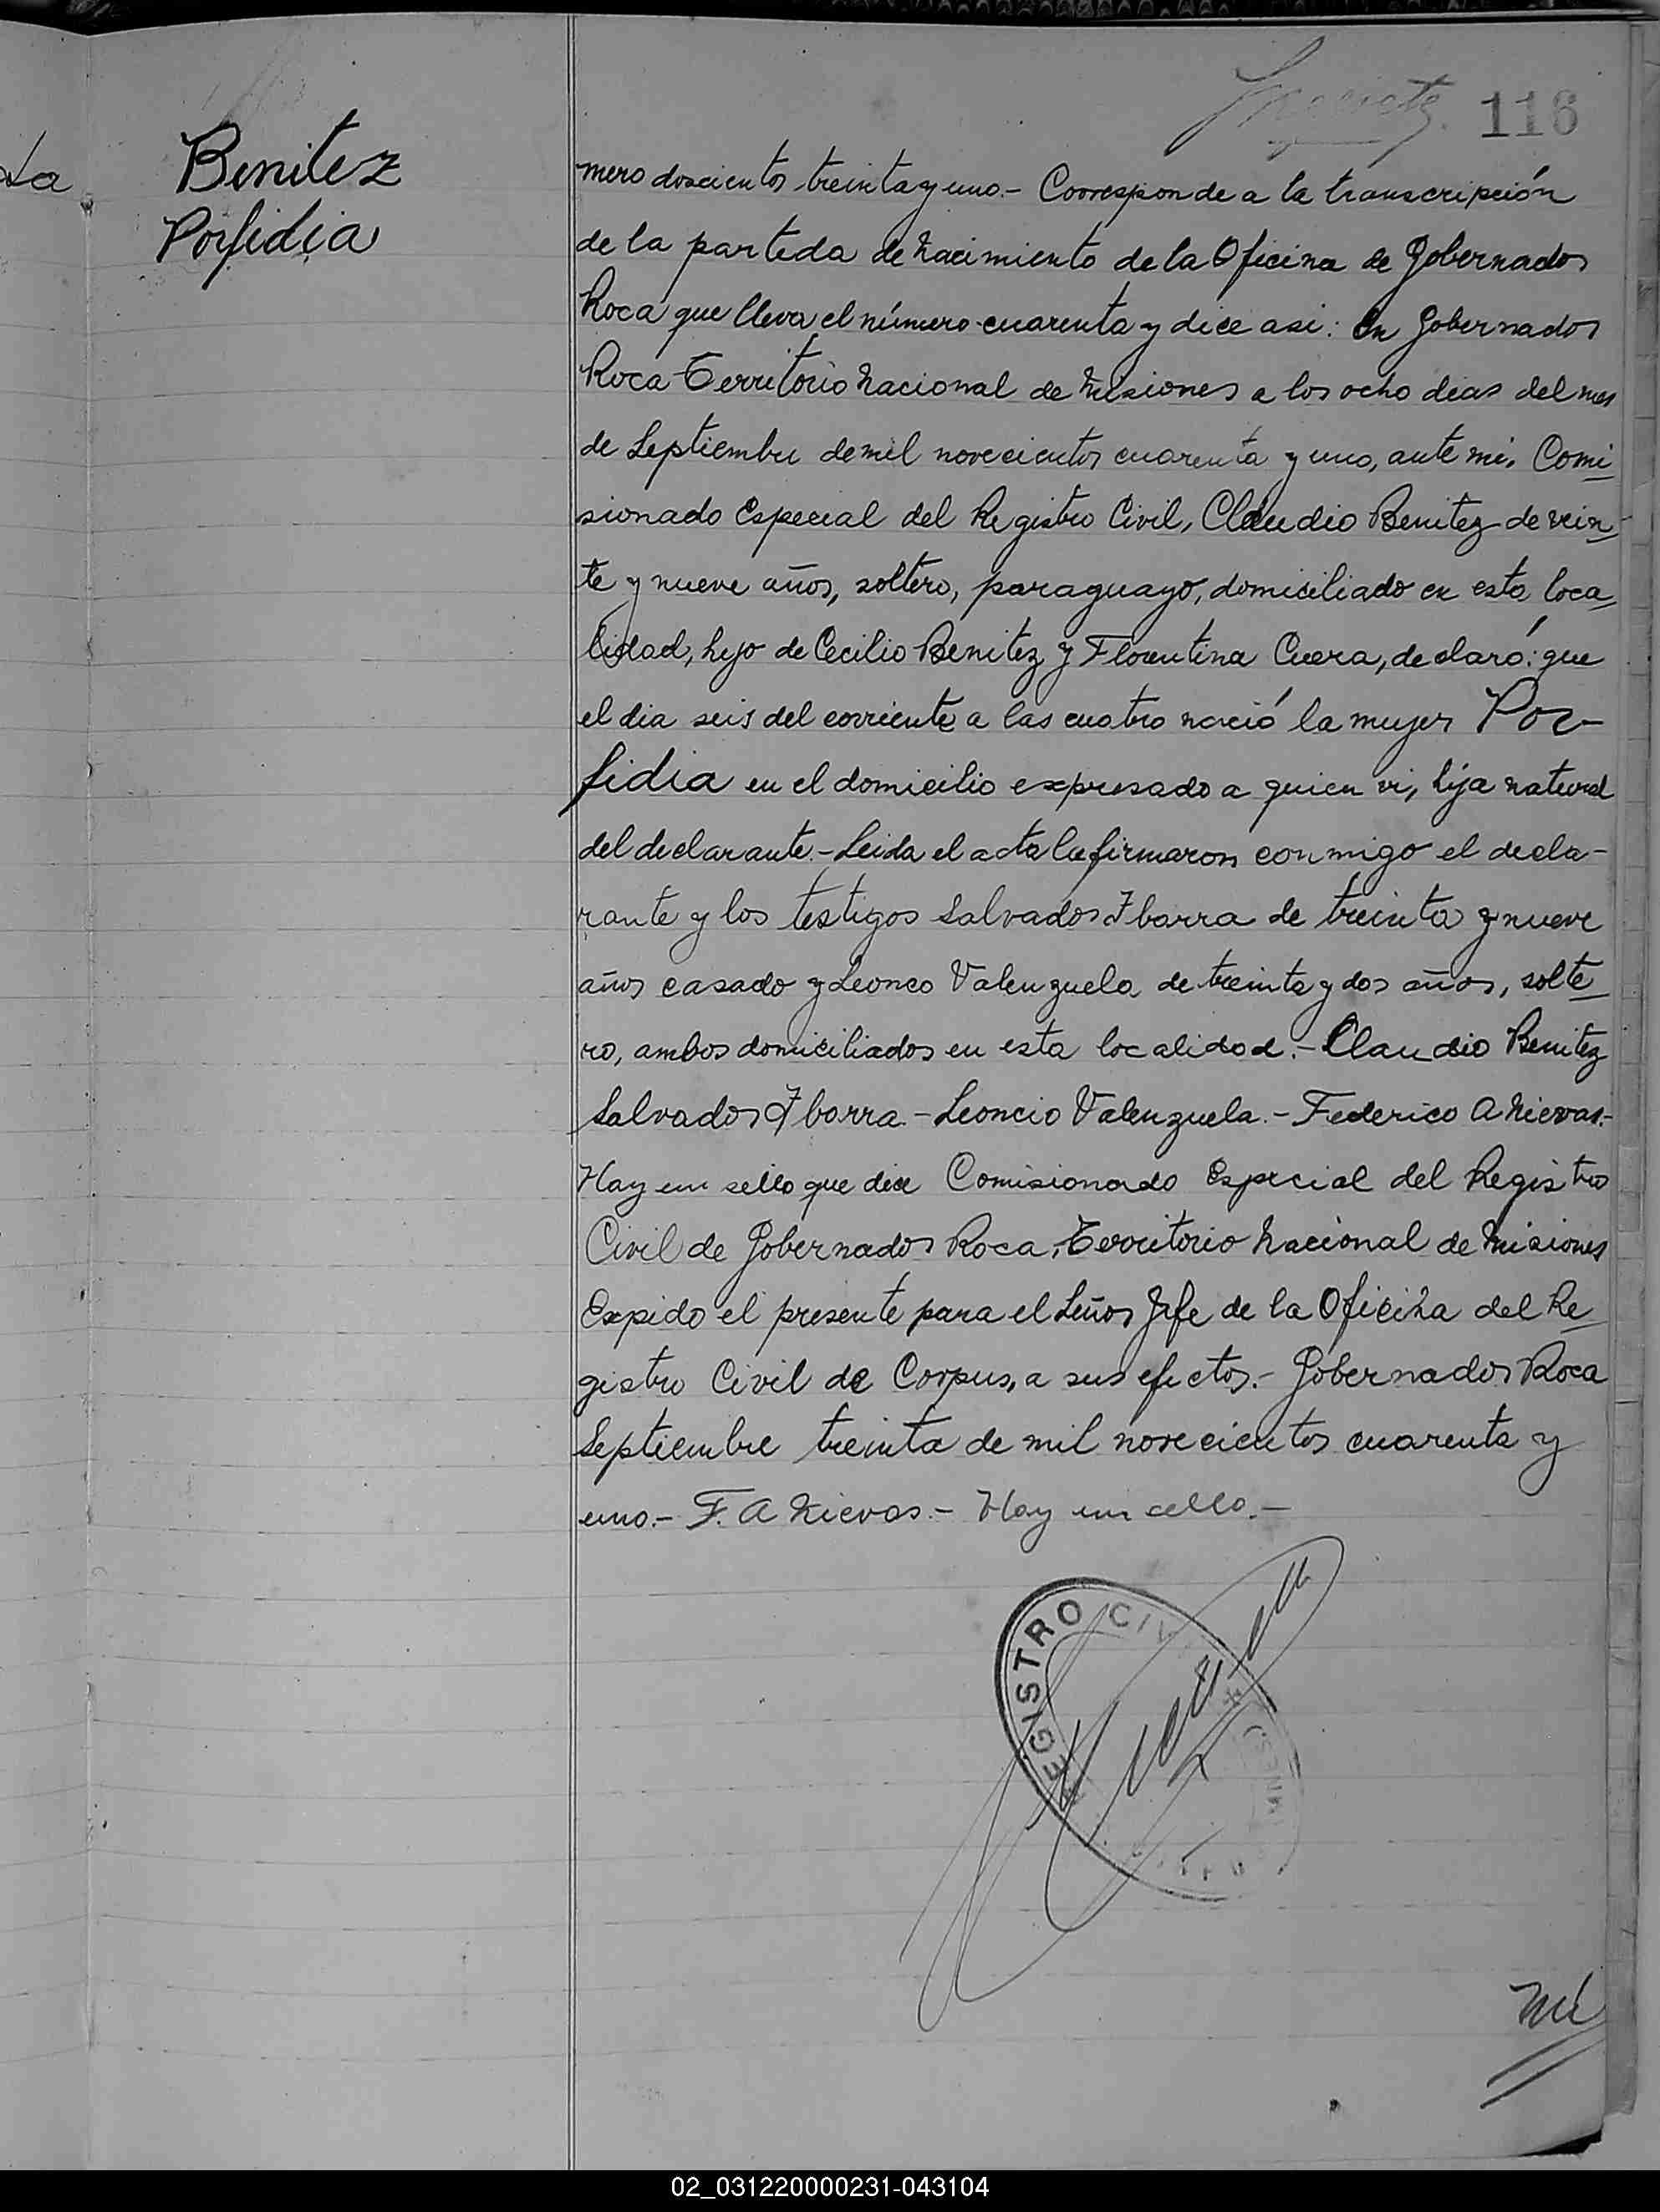 116
da
Benitez
Porfidia
mero doscientos treinta y uno.- Corresponde a la transcripción
de la partida de Nacimiento de la Oficina de Gobernador
Roca que lleva el número cuarenta y dice asi: En Gobernador
Roca Territorio Nacional de Misiones a los ocho dias del mes
de Septiembre de mil novecientos cuarenta y uno, ante mi, Comi
sionado Especial del Registro Civil, Claudio Benitez de vein
te y nueve años, soltero, paraguayo, domiciliado en esta loca
lidad, hijo de Cecilio Benitez y Florentina Cuera, declaró: que
el dia seis del corriente a las cuatro nació la mujer Por-
fidia en el domicilio expresado a quien vi, hija natural
del declarante.- Leida el acta la firmaron conmigo el decla-
rante y los testigos Salvador Ibarra de treinta y nueve
años casado y Leonco Valenzuela de treinta y dos años, solte
ro, ambos domiciliados en esta localidad.- Claudio Benitez
Salvador Ibarra.- Leoncio Valenzuela.- Federico A Nievas.-
Hay un sello que dice Comisionado Especial del Registro
Civil de Gobernador Roca, Territorio Nacional de Misiones
Expido el presente para el Señor Jefe de la Oficina del Re
gistro Civil de Corpus, a sus efectos.- Gobernador Roca
Septiembre treinta de mil novecientos cuarenta y
uno.- F. A Nievas.- Hay un sello.-
REGISTRO CIV
Nú
02_031220000231-043104